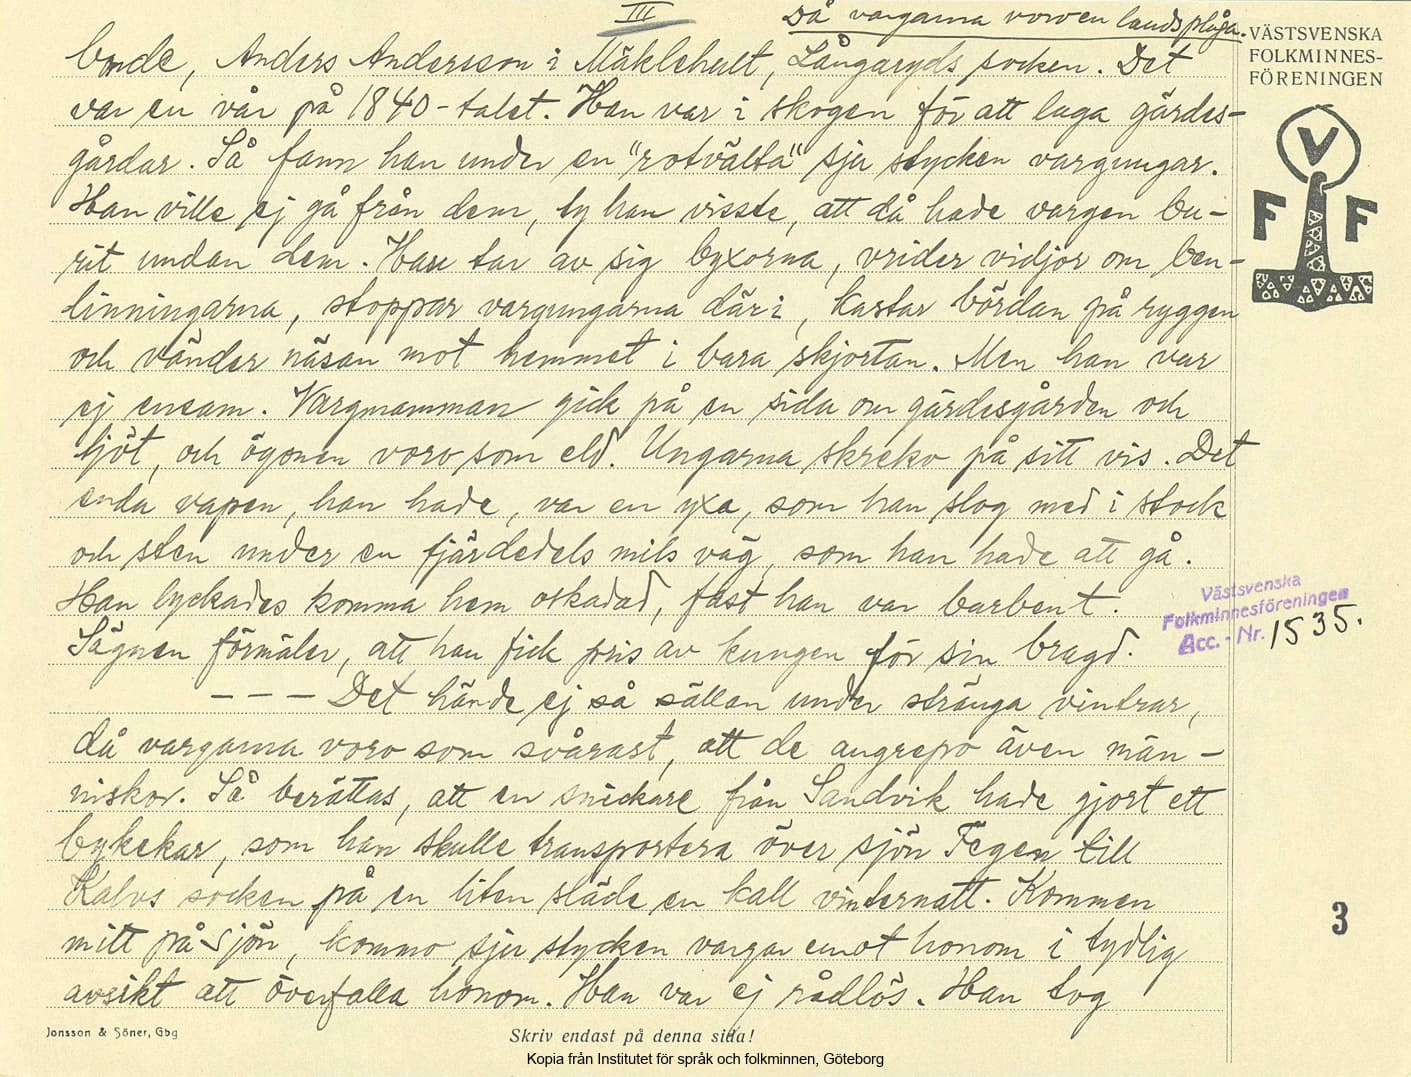 III
Då vargarna voro en landsplåga.
VÄSTSVENSKA
FOLKMINNES-
FÖRENINGEN
V
F F
bonde, Anders Andersson i Mäklehult, Långaryds socken. Det
var en vår på 1840-talet. Han var i skogen för att laga gärdes-
gårdar. Så fann han under en "rotvälta" sju stycken vargungar.
Han ville ej gå från dem, ty han visste, att då hade vargen bu-
rit undan dem. Han tar av sig byxorna, vrider vidjor om ben-
linningarna, stoppar vargungarna däri, kastar bördan på ryggen
och vänder näsan mot hemmet i bara skjortan. Men han var
ej ensam. Vargmamman gick på en sida om gärdesgården och
tjöt, och ögonen voro som eld. Ungarna skreko på sitt vis. Det
enda vapen, han hade, var en yxa, som han slog med i stock
och sten under en fjärdedels mils väg, som han hade att gå.
Han lyckades komma hem oskadad, fast han var barbent.
Sägnen förmäler, att han fick pris av kungen för sin bragd.
--- Det hände ej så sällan under stränga vintrar,
då vargarna voro som svårast, att de angrepo även män-
niskor. Så berättas, att en snickare från Sandvik hade gjort ett
bykekar, som han skulle transportera över sjön Fegen till
Kalvs socken på en liten släde en kall vinternatt. Kommen
mitt på sjön, kommo sju stycken vargar emot honom i tydlig
avsikt att överfalla honom. Han var ej rådlös. Han tog
Västsvenska
Folkminnesföreningen
Acc. - Nr. 1535.
3
Jonsson & Söner, Gbg
Skriv endast på denna sida!
Kopia från Institutet för språk och folkminnen, Göteborg